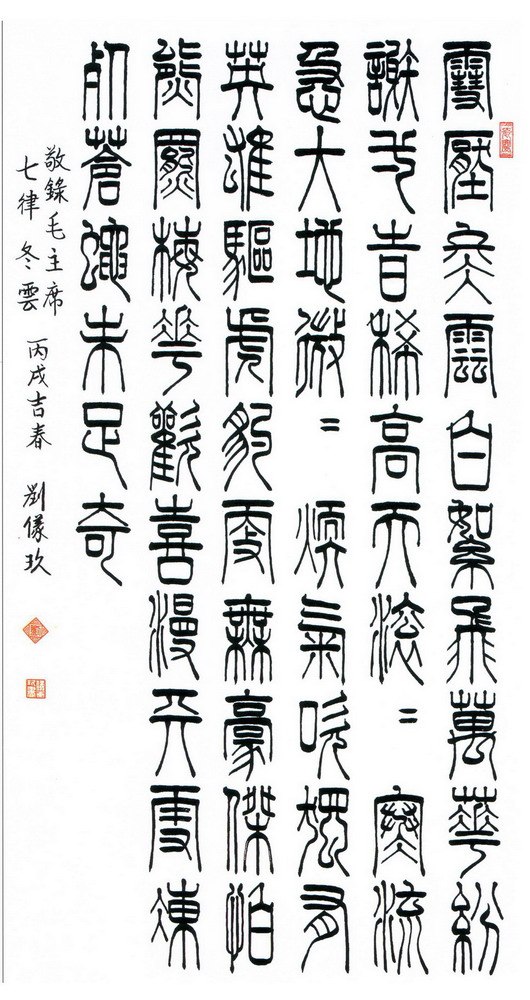 雪壓冬雲白絮飛萬華紛
謝弌旹稀高天滾〻寒流
急大地微〻煗氣吹獨有
英雄驅虎豹更無豪傑怕
熊羆梅華歡喜漫天雪凍
死蒼蠅未足奇
敬錄毛主席
七律 冬雲 丙戌吉春 劉儀玖